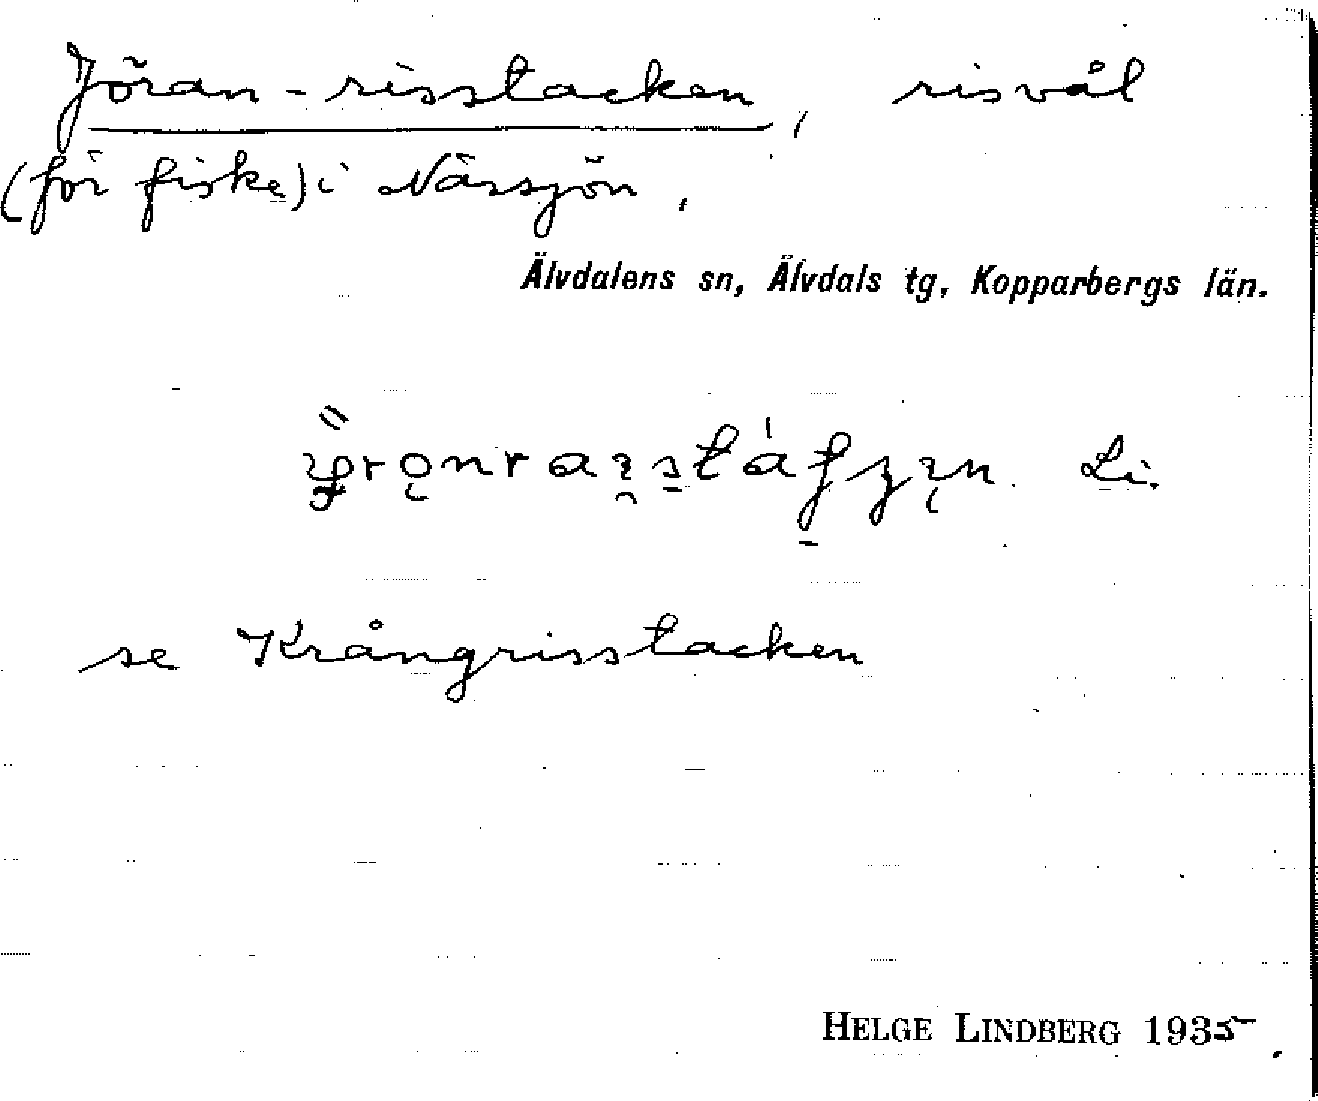 Jöran-risstacken, risvål
(för fiske) i Nässjön,
Älvdalens sn, Älvdals tg, Kopparbergs län.
Li.
se Krångrisstacken
HELGE LINDBERG 1935